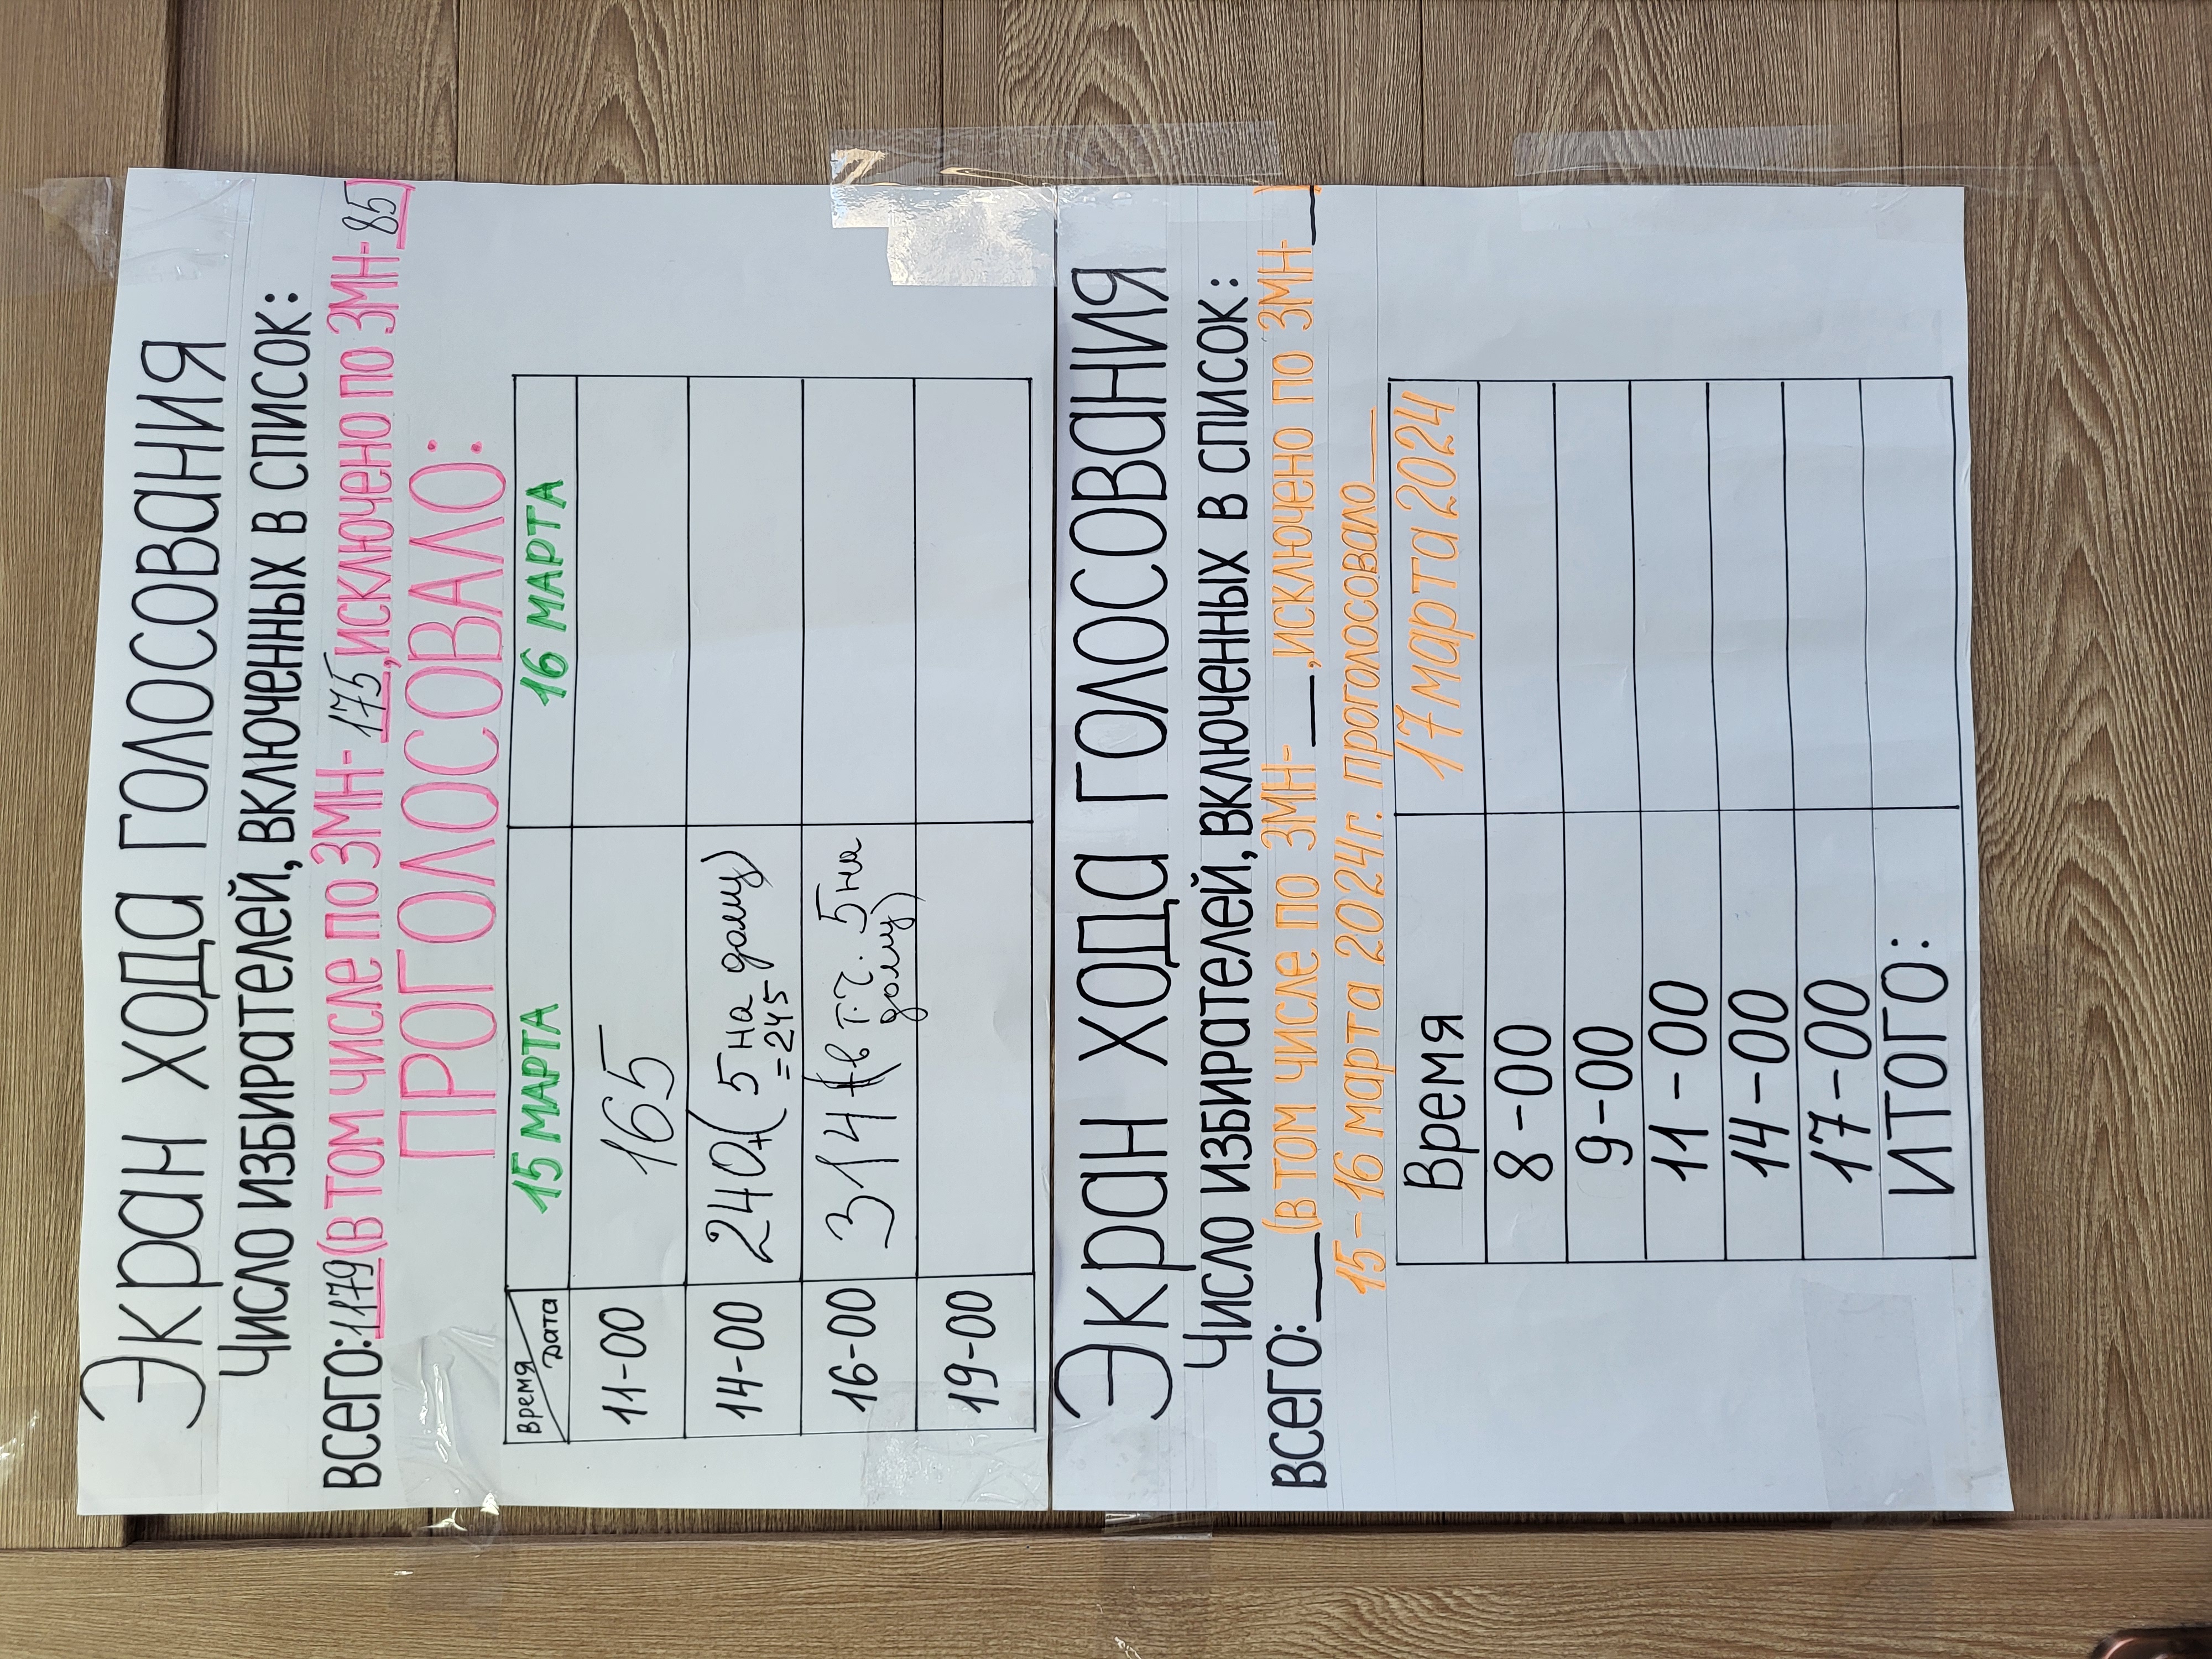 Экран хода голосования
Число избирателей, включенных в список:
ВСЕГО: 1179 (в том числе по ЗМН- 175, исключено по ЗМН- 85)
ПРОГОЛОСОВАЛО:
время Дата 15 МАРТА 16 МАРТА
11-00 165
14-00 240+(5 на дому)
=245
16-00 314 (в т.ч. 5 на
дому)
19-00
Экран хода голосования
Число избирателей, включенных в список:
ВСЕГО:___(в том числе по ЗМН-___, исключено по ЗМН-___)
15-16 марта 2024г. проголосовало___
Время 17 марта 2024
8-00
9-00
11-00
14-00
17-00
ИТОГО: